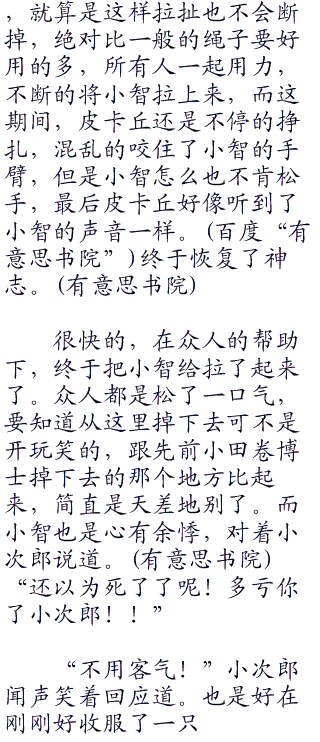 ，就算是这样拉扯也不会断
掉，绝对比一般的绳子要好
用的多，所有人一起用力，
不断的将小智拉上来，而这
期间，皮卡丘还是不停的挣
扎，混乱的咬住了小智的手
臂，但是小智怎么也不肯松
手，最后皮卡丘好像听到了
小智的声音一样。(百度“有
意思书院”)终于恢复了神
志。(有意思书院)
很快的，在众人的帮助
下，终于把小智给拉了起来
了。众人都是松了一口气，
要知道从这里掉下去可不是
开玩笑的，跟先前小田卷博
士掉下去的那个地方比起
来，简直是天差地别了。而
小智也是心有余悸，对着小
次郎说道。(有意思书院)
“还以为死了了呢！多亏你
了小次郎！！”
“不用客气！”小次郎
闻声笑着回应道。也是好在
刚刚好收服了一只